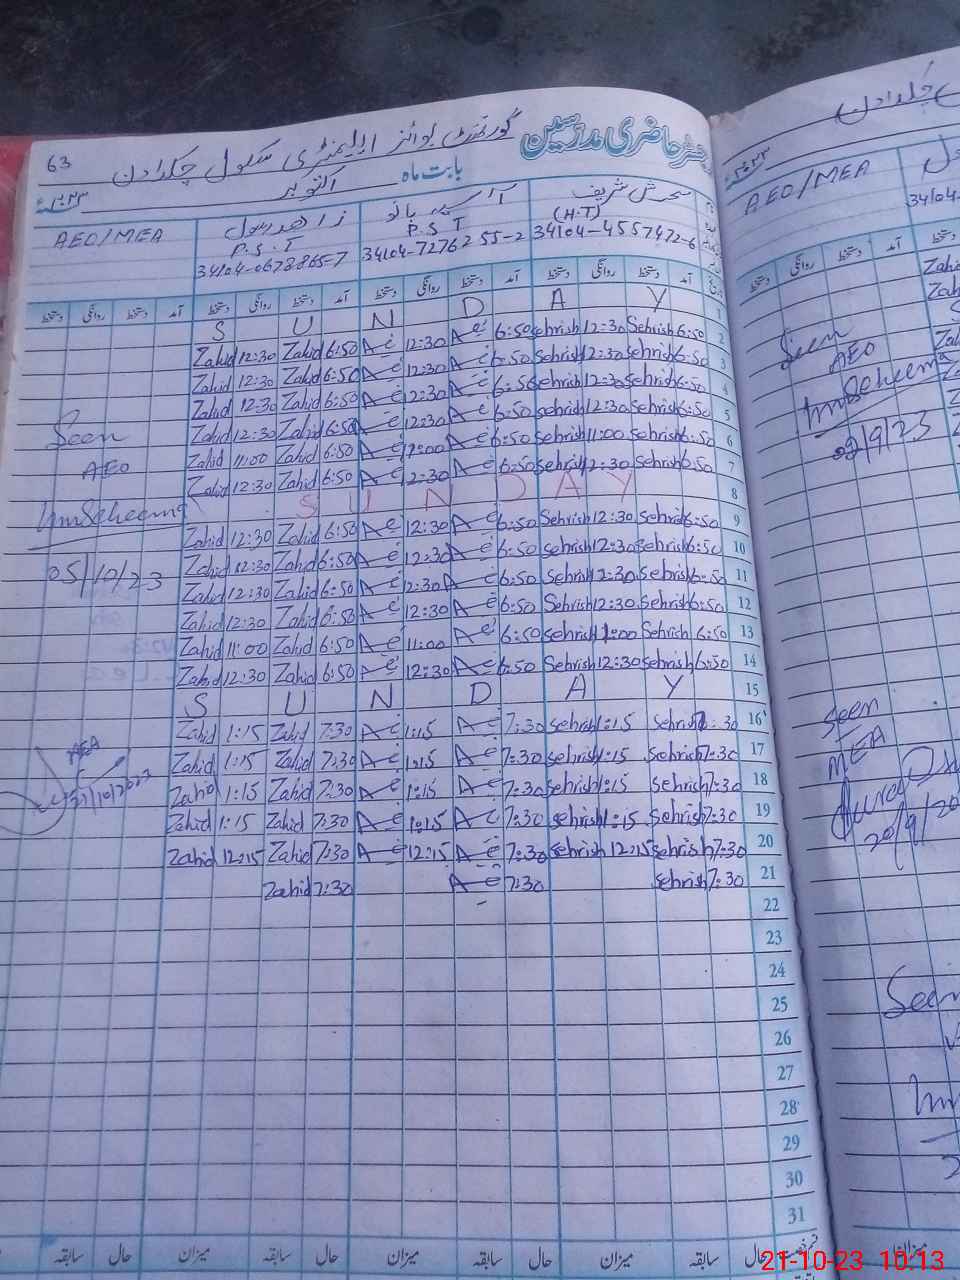 رجسٹر حاضری مدرسین گورنمنٹ بوائز ایلیمنٹری سکول چکرادن 63
بابت ماہ اکتوبر ۲۰۲۳ء
سحرش شریف آسیہ بانو زاھد رسول AEO/MEA
(H.T) P.S.T P.S.T
34104-4557472-6 34104-7276255-2 34104-0673865-7
دستخط روانگی دستخط آمد دستخط روانگی دستخط آمد دستخط روانگی دستخط آمد دستخط روانگی دستخط آمد
S U N D A Y 1
Zahid 12:30 Zahid 6:50 A-e 12:30 A-e 6:50 Sehrish 12:30 Sehrish 6:50 2
Zahid 12:30 Zahid 6:50 A-e 12:30 A-e 6:50 Sehrish 12:30 Sehrish 6:50 3
Zahid 12:30 Zahid 6:50 A-e 12:30 A-e 6:50 Sehrish 12:30 Sehrish 6:50 4
Zahid 12:30 Zahid 6:50 A-e 12:30 A-e 6:50 Sehrish 12:30 Sehrish 6:50 5
Zahid 11:00 Zahid 6:50 A-e 11:00 A-e 6:50 Sehrish 11:00 Sehrish 6:50 6
Zahid 12:30 Zahid 6:50 A-e 12:30 A-e 6:50 Sehrish 12:30 Sehrish 6:50 7
S U N D A Y 8
Zahid 12:30 Zahid 6:50 A-e 12:30 A-e 6:50 Sehrish 12:30 Sehrish 6:50 9
Zahid 12:30 Zahid 6:50 A-e 12:30 A-e 6:50 Sehrish 12:30 Sehrish 6:50 10
Zahid 12:30 Zahid 6:50 A-e 12:30 A-e 6:50 Sehrish 12:30 Sehrish 6:50 11
Zahid 12:30 Zahid 6:50 A-e 12:30 A-e 6:50 Sehrish 12:30 Sehrish 6:50 12
Zahid 11:00 Zahid 6:50 A-e 11:00 A-e 6:50 Sehrish 11:00 Sehrish 6:50 13
Zahid 12:30 Zahid 6:50 A-e 12:30 A-e 6:50 Sehrish 12:30 Sehrish 6:50 14
S U N D A Y 15
Zahid 1:15 Zahid 7:30 A-e 1:15 A-e 7:30 Sehrish 1:15 Sehrish 7:30 16
Zahid 1:15 Zahid 7:30 A-e 1:15 A-e 7:30 Sehrish 1:15 Sehrish 7:30 17
Zahid 1:15 Zahid 7:30 A-e 1:15 A-e 7:30 Sehrish 1:15 Sehrish 7:30 18
Zahid 1:15 Zahid 7:30 A-e 1:15 A-e 7:30 Sehrish 1:15 Sehrish 7:30 19
Zahid 12:15 Zahid 7:30 A-e 12:15 A-e 7:30 Sehrish 12:15 Sehrish 7:30 20
Zahid 7:30 A-e 7:30 Sehrish 7:30 21
22
23
24
25
26
27
28
29
30
31
میزان سابقہ حال میزان سابقہ حال میزان سابقہ حال سابقہ حال
Seen
AEO
05/10/23
MEA
چکرادن
۲۰۲۳ء
AEO/MEA
34104-
دستخط روانگی دستخط آمد
Zahid
Zahid
Seen
AEO
02/9/23
Seen
MEA
20/9/20
Seen
میزان
21-10-23 10:13